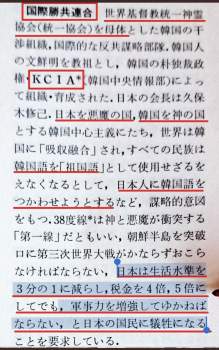 国際勝共連合　世界基督教統一神霊
協会(統一協会)を母体とした韓国の干
渉組織,国際的な反共謀略部隊。韓国人
の文鮮明を教祖とし,韓国の朴独裁政
権・KCIA*(韓国中央情報部)によっ
て組織・育成された。日本の会長は久保
木修己。日本を悪魔の国,韓国を神の国
とする韓国中心主義にたち,世界は韓国
に「吸収融合」され,すべての民族は
韓国語を「祖国語」として使用せざるを
えなくなるとして,日本人に韓国語を
つかわせようとするなど,謀略的意図
をもつ。38度線*は神と悪魔が衝突する
「第一線」だともいい,朝鮮半島を突破
口に第三次世界大戦がかならずおこら
なければならない,日本は生活水準を
3分の1に減らし,税金を4倍,5倍に
してでも,軍事力を増強してゆかねば
ならない,と日本の国民に犠牲になる
ことを要求している。